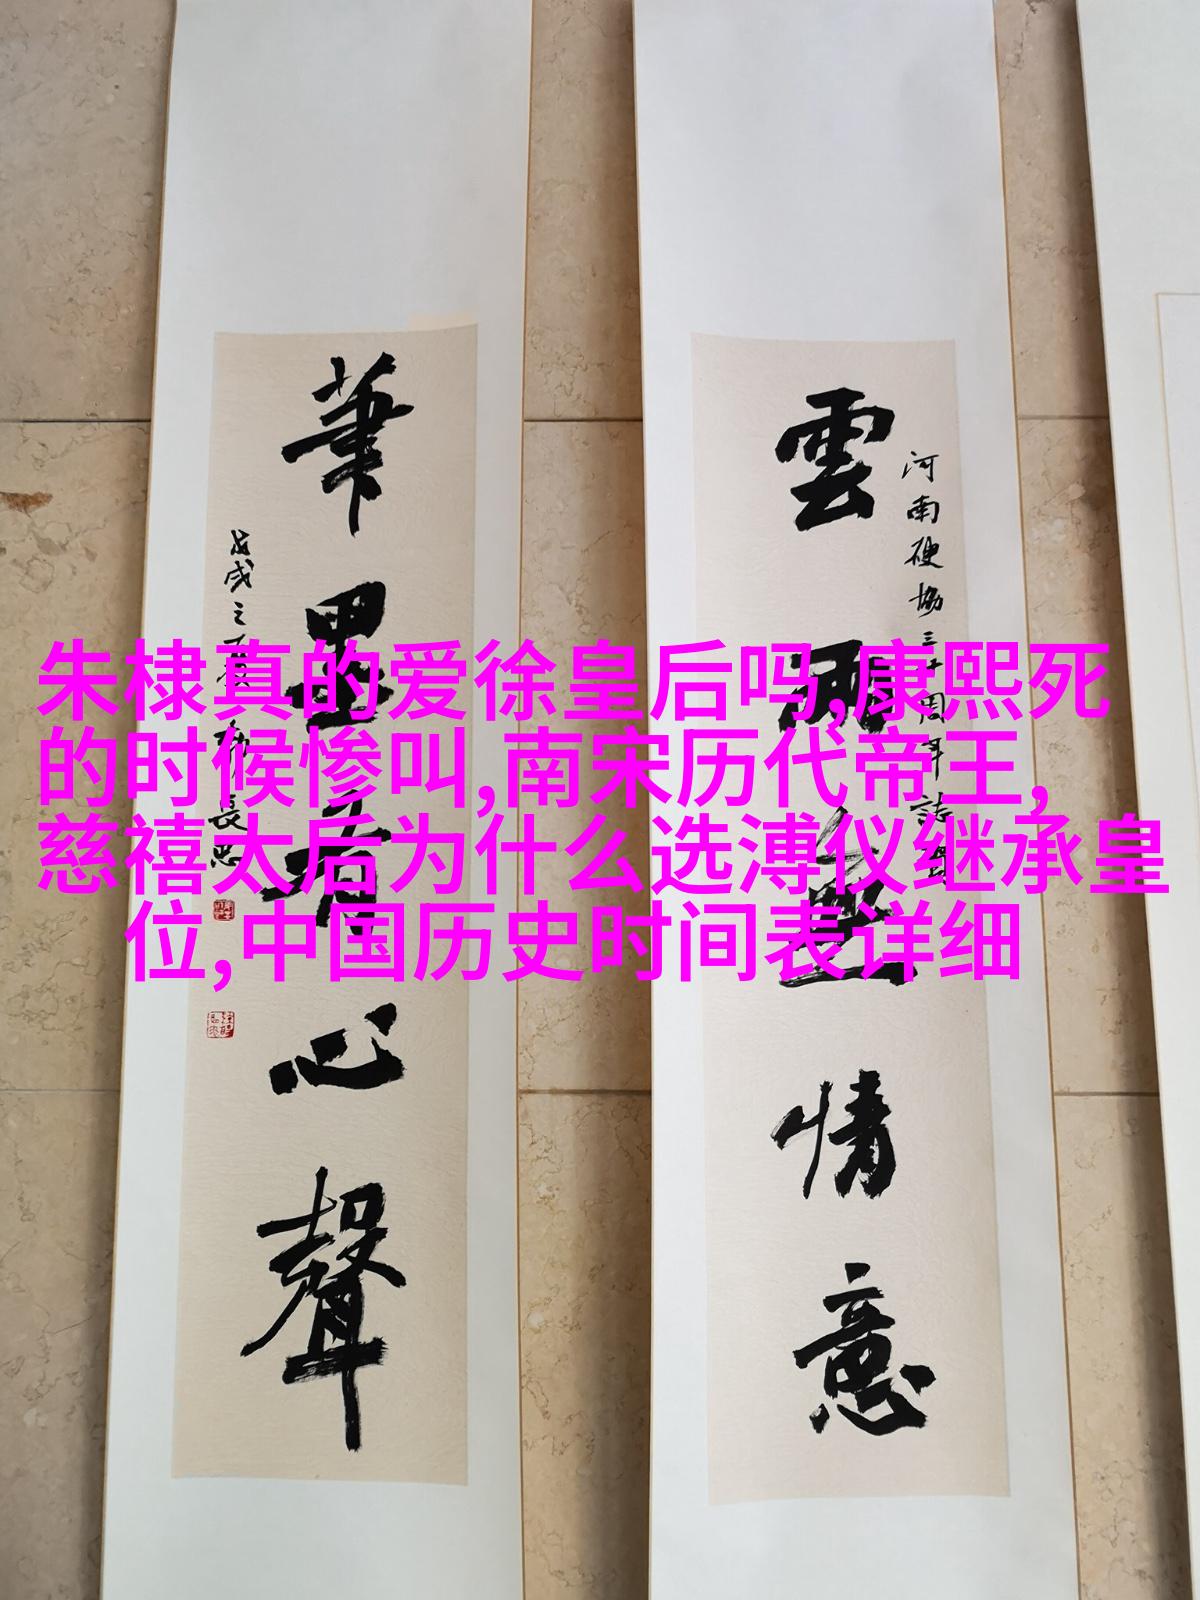 朱棣真的爱徐皇后吗,康熙死
的时候惨叫,南宋历代帝王,
慈禧太后为什么选溥仪继承皇
位,中国历史时间表详细
河南硬協三十周年誌賀
雲雨無情意
筆墨有心聲
戊戌之夏